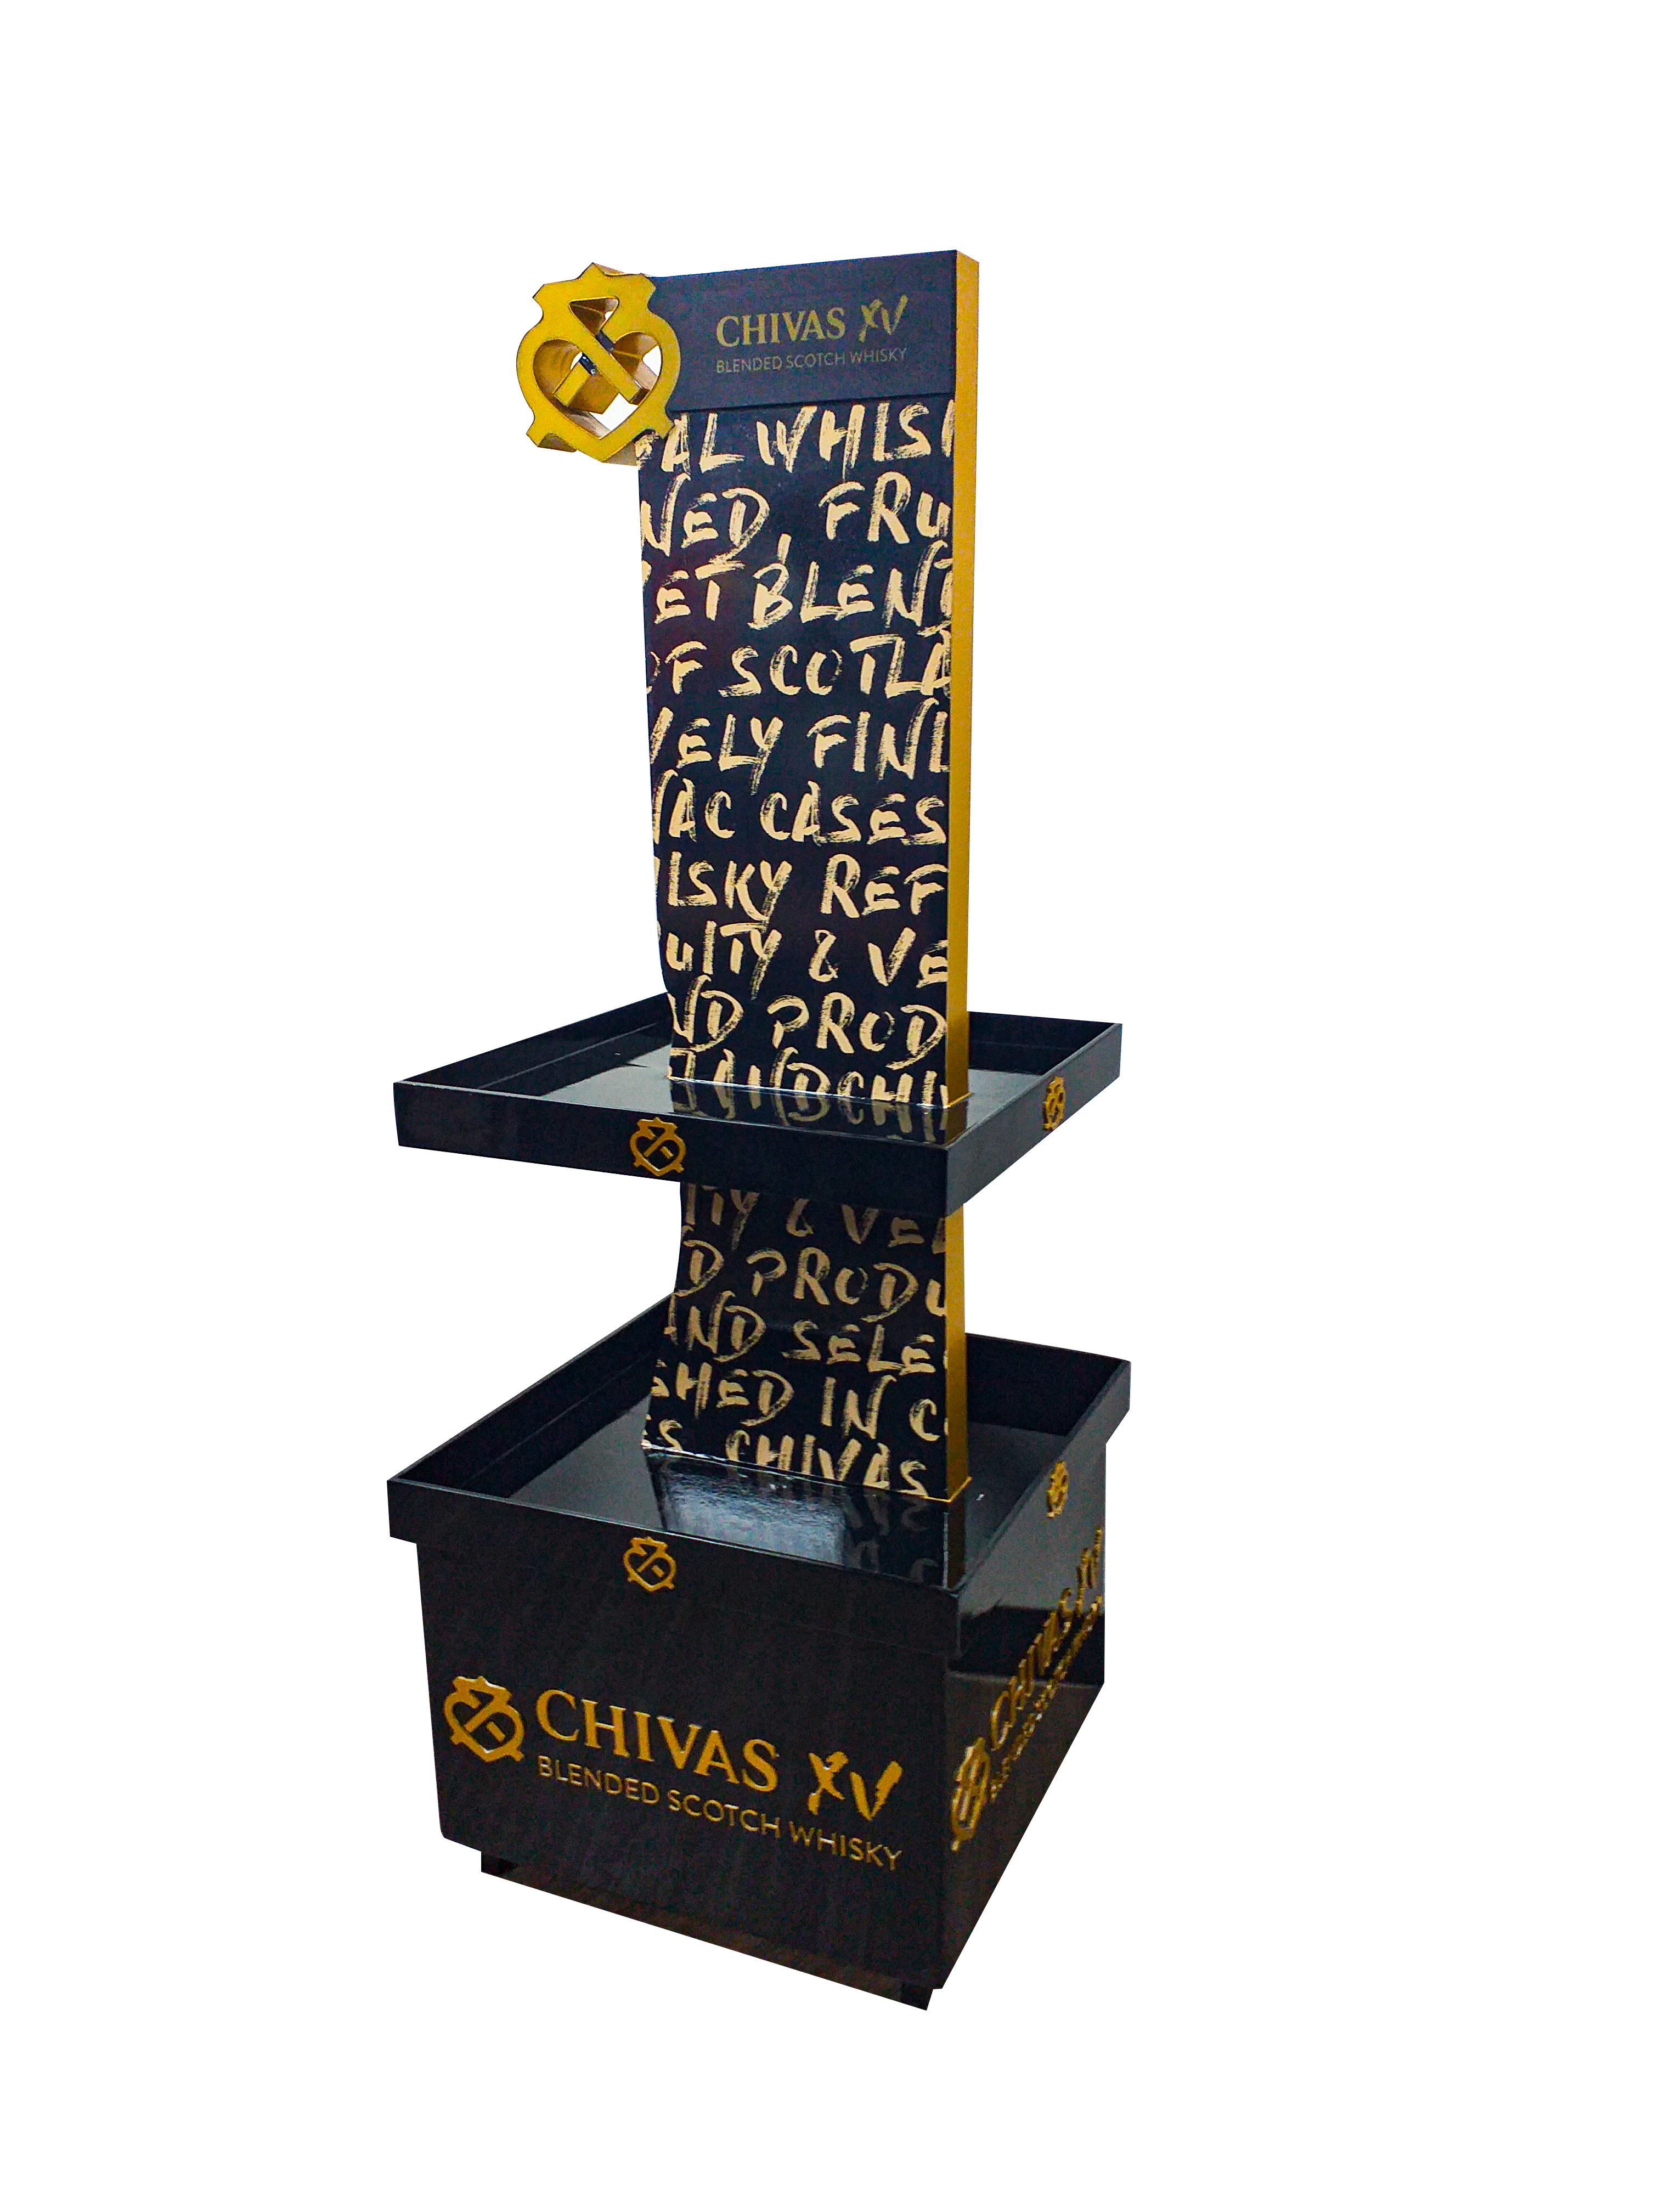 CHIVAS XV
BLENDED SCOTCH WHISKY
AL WHISK
NED, FRU
ET BLENT
OF SCOTLA
VELY FINI
AC CASES
ISKY REF
UITY & VE
ND PROD
LANDCHI
ITY & VEL
D PRODU
AND SELE
SHED IN C
S CHIVAS
CHIVAS XV
BLENDED SCOTCH WHISKY
CHIVAS XV